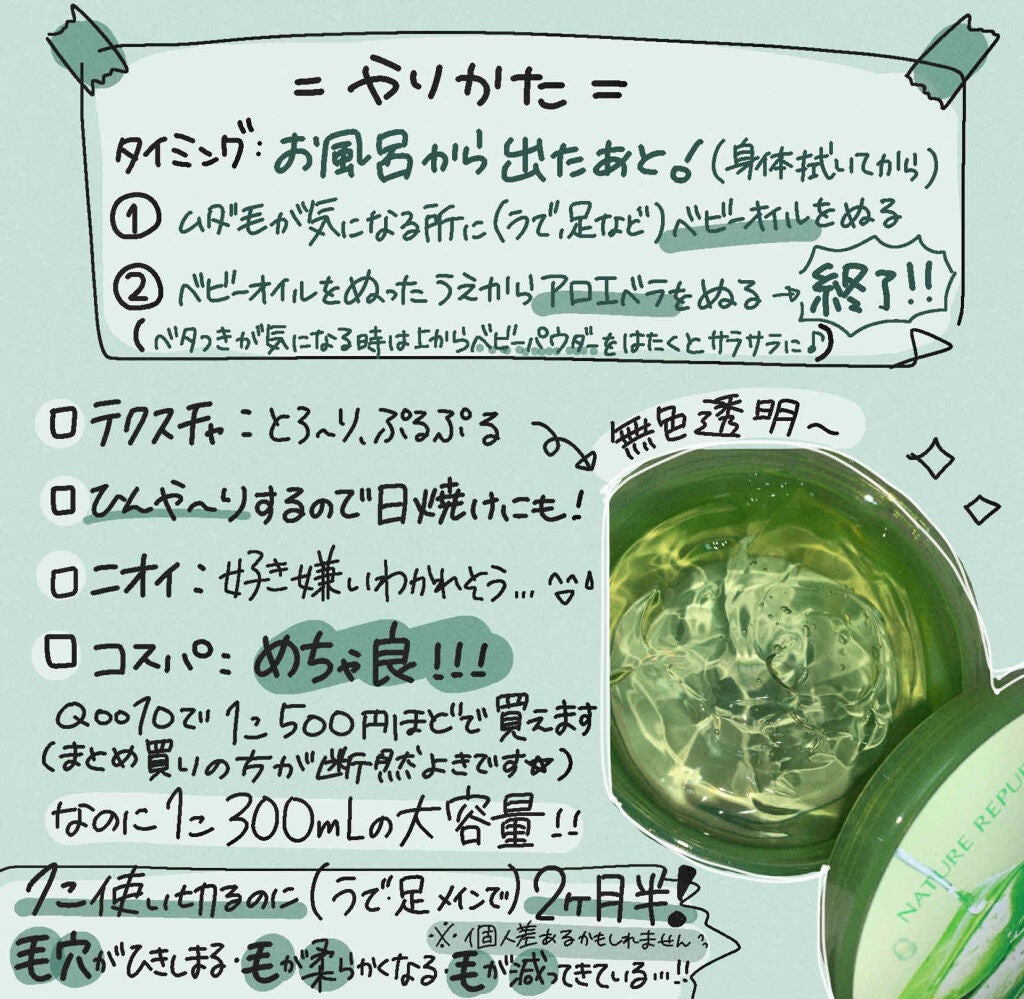 = やりかた =
タイミング: お風呂から出たあと! (身体拭いてから)
① ムダ毛が気になる所に(うで,足など)ベビーオイルをぬる
② ベビーオイルをぬったうえからアロエベラをぬる → 終了!!
(ベタつきが気になる時は上からベビーパウダーをはたくとサラサラに♪)
□ テクスチャ: とろ〜り、ぷるぷる
無色透明〜
□ ひんや〜りするので日焼けにも!
□ ニオイ: 好き嫌いわかれそう...
□ コスパ: めちゃ良!!!
Qoo10で1こ500円ほどで買えます
(まとめ買いの方が断然よきです☆)
なのに1こ300mLの大容量!!
NATURE REPU
1こ使い切るのに(うで・足メインで)2ヶ月半!
※・個人差あるかもしれません
毛穴がひきしまる・毛が柔らかくなる・毛が減ってきている...!!